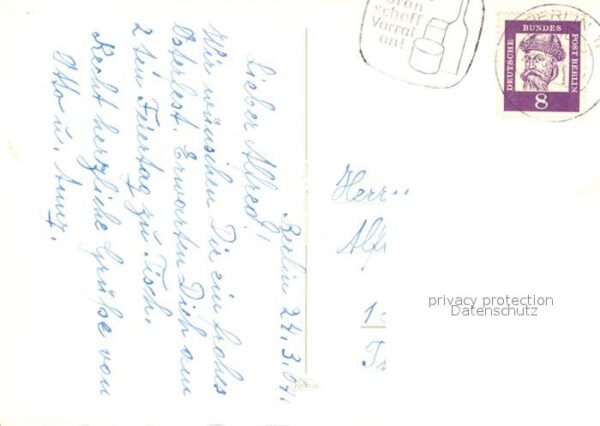 Berlin 24.3.64.
Lieber Alfred!
Wir wünschen Dir ein frohes
Osterfest. Erwarten Dich am
2 ten Feiertag zu Tisch.
Recht herzliche Grüße von
Otto u. Anny.
scheff
Vorrat
an!
BERLIN
DEUTSCHE BUNDES POST BERLIN
8
Herr
Alf
1
privacy protection
Datenschutz